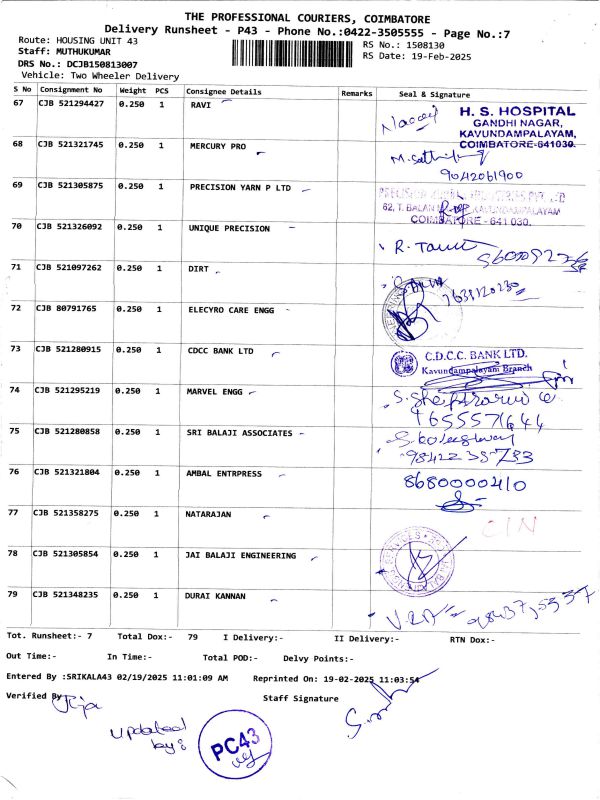 THE PROFESSIONAL COURIERS, COIMBATORE
Delivery Runsheet - P43 - Phone No.:0422-3505555 - Page No.:7
Route: HOUSING UNIT 43
RS No.: 1508130
Staff: MUTHUKUMAR
RS Date: 19-Feb-2025
DRS No.: DCJB150813007
Vehicle: Two Wheeler Delivery
S No Consignment No Weight PCS Consignee Details Remarks Seal & Signature
67 CJB 521294427 0.250 1 RAVI
H. S. HOSPITAL
GANDHI NAGAR,
KAVUNDAMPALAYAM,
COIMBATORE-641030.
68 CJB 521321745 0.250 1 MERCURY PRO
9042061900
69 CJB 521305875 0.250 1 PRECISION YARN P LTD
62, T. BALAN KAVUNDAMPALAYAM
COIMBATORE - 641 030.
70 CJB 521326092 0.250 1 UNIQUE PRECISION
71 CJB 521097262 0.250 1 DIRT
72 CJB 80791765 0.250 1 ELECYRO CARE ENGG
73 CJB 521280915 0.250 1 CDCC BANK LTD
C.D.C.C. BANK LTD.
Kavundampalayam Branch
74 CJB 521295219 0.250 1 MARVEL ENGG
75 CJB 521280858 0.250 1 SRI BALAJI ASSOCIATES
76 CJB 521321804 0.250 1 AMBAL ENTRPRESS
8680000410
77 CJB 521358275 0.250 1 NATARAJAN
CIN
78 CJB 521305854 0.250 1 JAI BALAJI ENGINEERING
79 CJB 521348235 0.250 1 DURAI KANNAN
Tot. Runsheet:- 7 Total Dox:- 79 I Delivery:- II Delivery:- RTN Dox:-
Out Time:- In Time:- Total POD:- Delvy Points:-
Entered By :SRIKALA43 02/19/2025 11:01:09 AM Reprinted On: 19-02-2025 11:03:54
Verified By Staff Signature
updated
by:
PC43